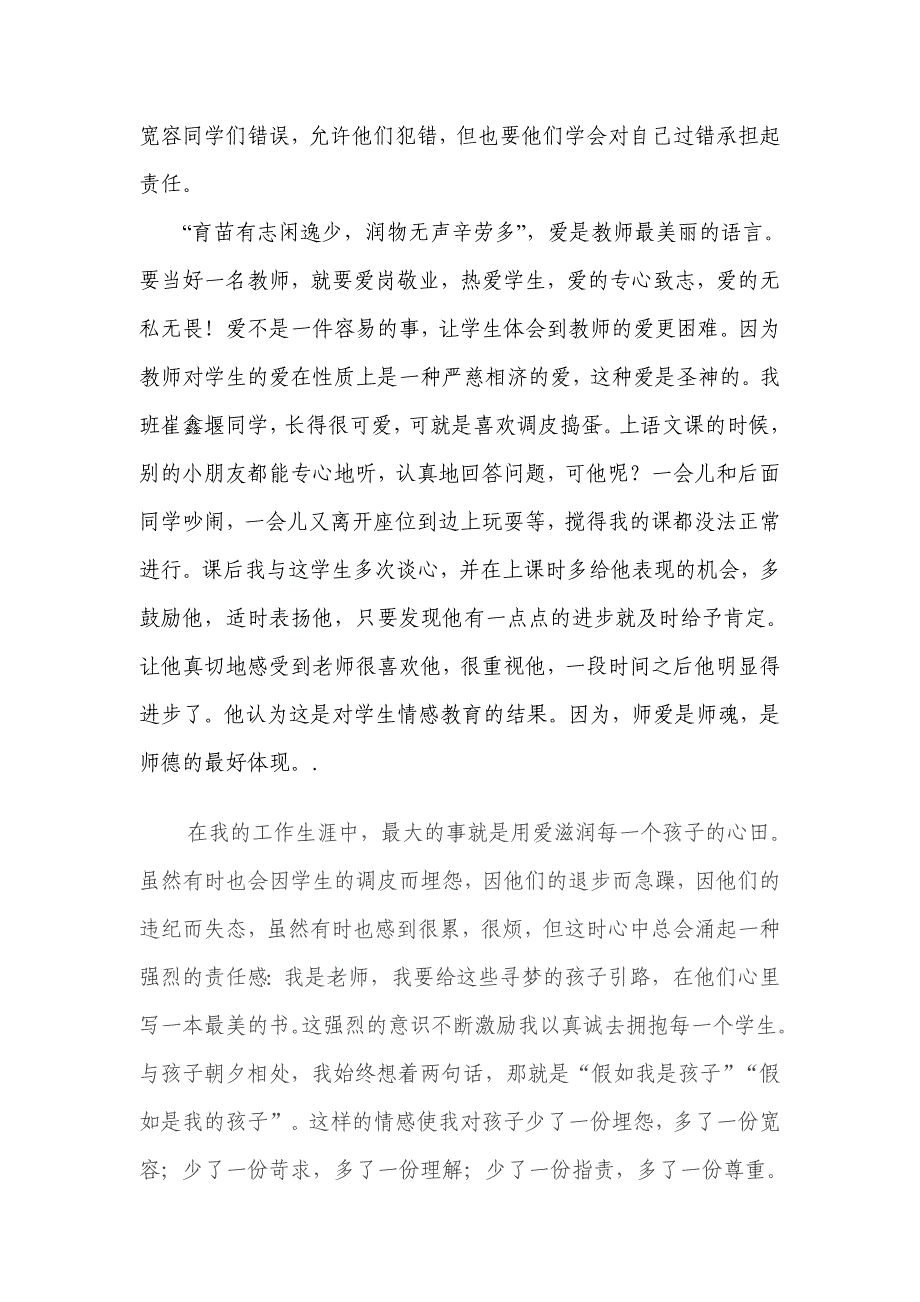 宽容同学们错误，允许他们犯错，但也要他们学会对自己过错承担起
责任。
“育苗有志闲逸少，润物无声辛劳多”，爱是教师最美丽的语言。
要当好一名教师，就要爱岗敬业，热爱学生，爱的专心致志，爱的无
私无畏！爱不是一件容易的事，让学生体会到教师的爱更困难。因为
教师对学生的爱在性质上是一种严慈相济的爱，这种爱是圣神的。我
班崔鑫堰同学，长得很可爱，可就是喜欢调皮捣蛋。上语文课的时候，
别的小朋友都能专心地听，认真地回答问题，可他呢？一会儿和后面
同学吵闹，一会儿又离开座位到边上玩耍等，搅得我的课都没法正常
进行。课后我与这学生多次谈心，并在上课时多给他表现的机会，多
鼓励他，适时表扬他，只要发现他有一点点的进步就及时给予肯定。
让他真切地感受到老师很喜欢他，很重视他，一段时间之后他明显得
进步了。他认为这是对学生情感教育的结果。因为，师爱是师魂，是
师德的最好体现。.
在我的工作生涯中，最大的事就是用爱滋润每一个孩子的心田。
虽然有时也会因学生的调皮而埋怨，因他们的退步而急躁，因他们的
违纪而失态，虽然有时也感到很累，很烦，但这时心中总会涌起一种
强烈的责任感：我是老师，我要给这些寻梦的孩子引路，在他们心里
写一本最美的书。这强烈的意识不断激励我以真诚去拥抱每一个学生。
与孩子朝夕相处，我始终想着两句话，那就是“假如我是孩子”“假
如是我的孩子”。这样的情感使我对孩子少了一份埋怨，多了一份宽
容；少了一份苛求，多了一份理解；少了一份指责，多了一份尊重。